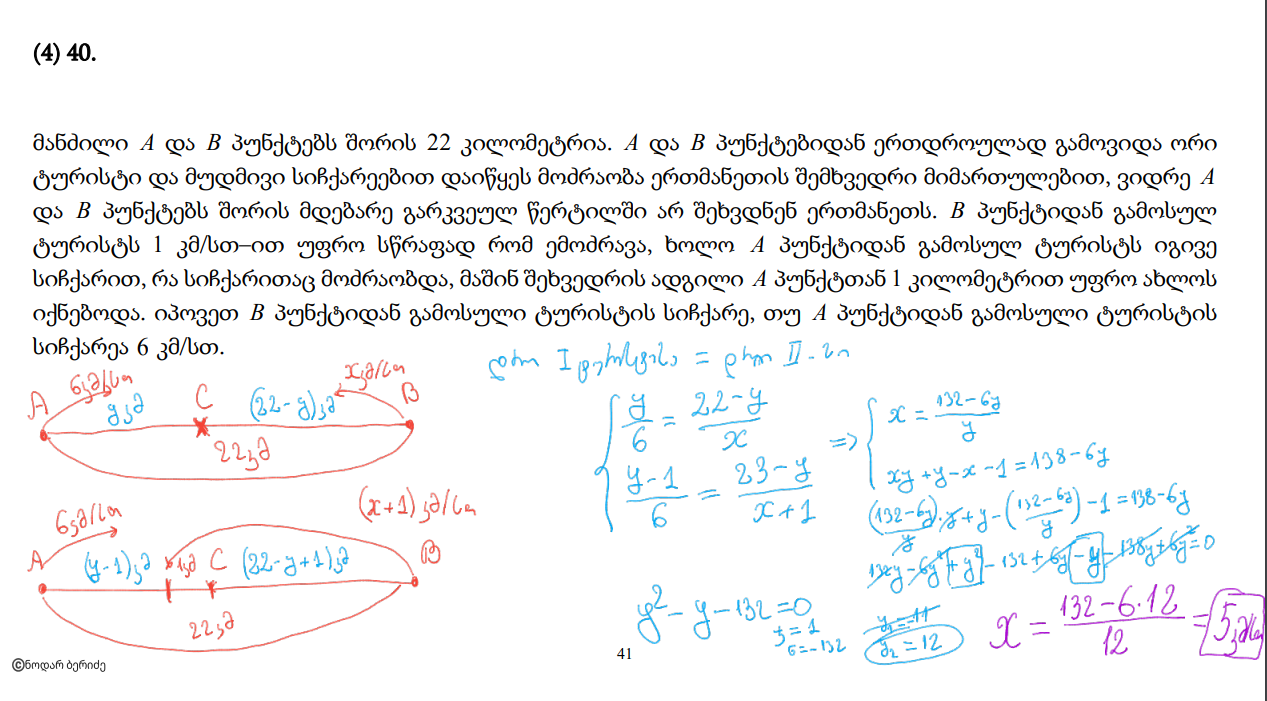 (4) 40.
მანძილი A და B პუნქტებს შორის 22 კილომეტრია. A და B პუნქტებიდან ერთდროულად გამოვიდა ორი
ტურისტი და მუდმივი სიჩქარეებით დაიწყეს მოძრაობა ერთმანეთის შემხვედრი მიმართულებით, ვიდრე A
და B პუნქტებს შორის მდებარე გარკვეულ წერტილში არ შეხვდნენ ერთმანეთს. B პუნქტიდან გამოსულ
ტურისტს 1 კმ/სთ–ით უფრო სწრაფად რომ ემოძრავა, ხოლო A პუნქტიდან გამოსულ ტურისტს იგივე
სიჩქარით, რა სიჩქარითაც მოძრაობდა, მაშინ შეხვედრის ადგილი A პუნქტთან 1 კილომეტრით უფრო ახლოს
იქნებოდა. იპოვეთ B პუნქტიდან გამოსული ტურისტის სიჩქარე, თუ A პუნქტიდან გამოსული ტურისტის
სიჩქარეა 6 კმ/სთ.
დრო I ტურისტის = დრო II-ის
6კმ/სთ x კმ/სთ
A yკმ C (22-y)კმ B
22კმ
y/6 = (22-y)/x
(y-1)/6 = (23-y)/(x+1)
=> x = (132-6y)/y
xy+y-x-1=138-6y
(132-6y)/y · y + y - ((132-6y)/y) - 1 = 138-6y
132y-6y²+y²-132+6y-y-138y+6y²=0
6კმ/სთ (x+1)კმ/სთ
A (y-1)კმ 1კმ C (22-y+1)კმ B
22კმ
y²-y-132=0
y₁=-11
y₂=12
x = (132-6·12)/12 = 5კმ/სთ
41
©ნოდარ ბერიძე